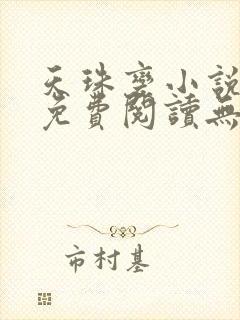 天珠變小說
免費閱讀無
市村基